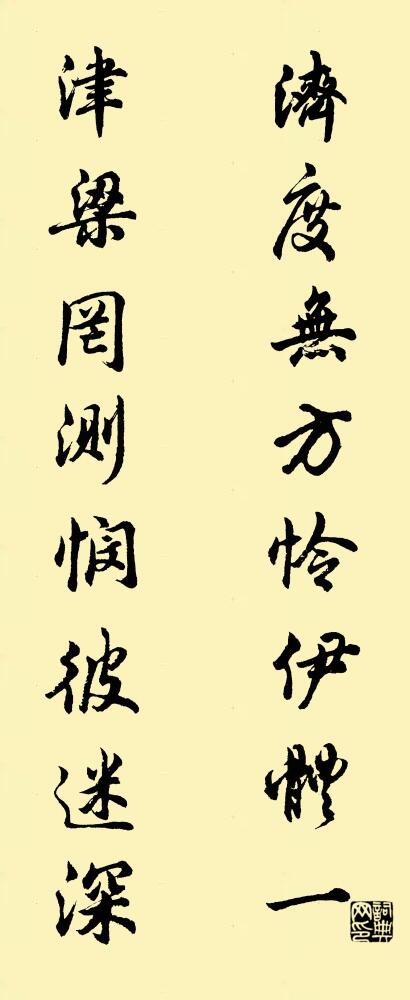 濟度無方怜伊體一
津梁罔測悯彼迷深
詞典网印